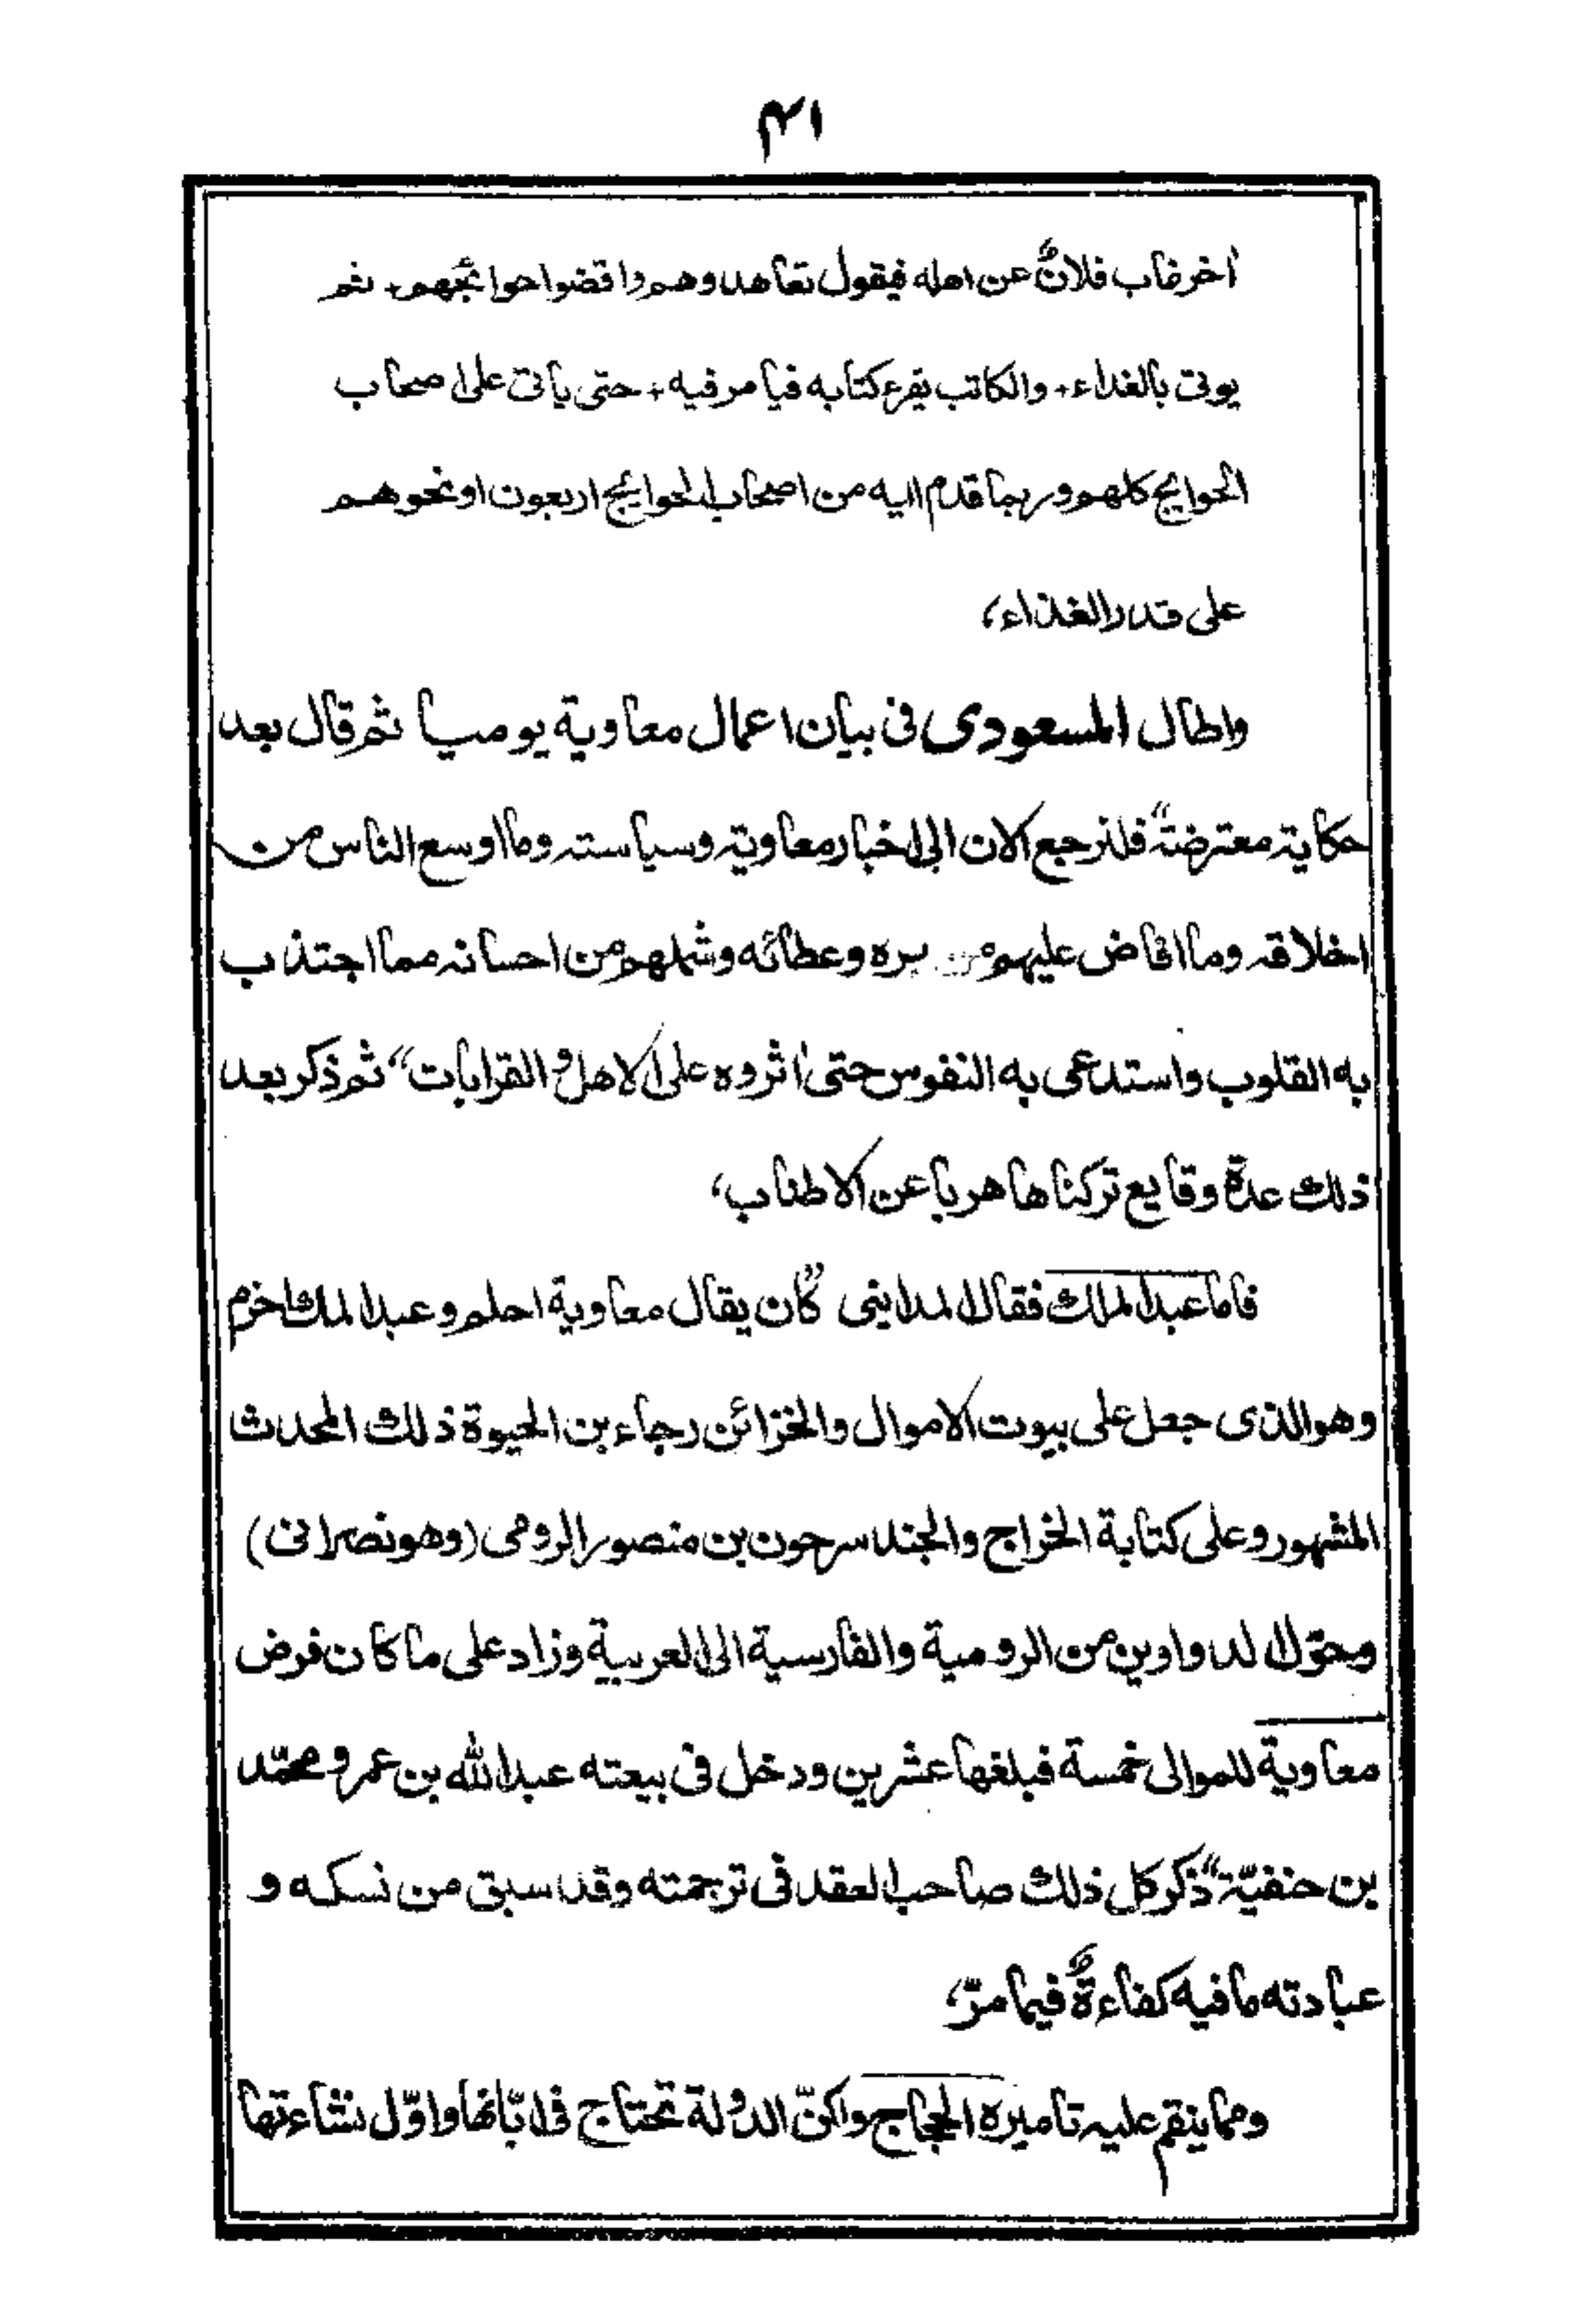 ٤١
اخر غاب فلانٌ عن اهله فيقول تعاهدوهم واقضوا حوائجهم، ثم
يوتى بالغداء، والكاتب يقرء كتابه فيامر فيه، حتى ياتى على اصحاب
الحوايج كلهم وربما قدم اليه من اصحاب الحوايئج اربعون او نحوهم
على قدر الغذاء،
واطال المسعودى فى بيان اعمال معاوية يوميا ثم قال بعد
حكاية معترضة "فلنرجع الان الى اخبار معاوية وسياسته وما اوسع الناس من
اخلاقه وما افاض عليهم من بره وعطائه وشملهم من احسانه مما اجتذب
به القلوب واستدعى به النفوس حتى اثروه على الاهل و القرابات" ثم ذكر بعد
ذلك عدة وقايع تركناها هربا عن الاطناب،
فاما عبد الملك فقال المداينى "كان يقال معاوية احلم وعبد الملك اخرم
وهو الذى جعل على بيوت الاموال والخزائن رجاء بن الحيوة ذلك المحدث
المشهور وعلى كتابة الخراج والجند سرحون بن منصور الرومى (وهو نصرانى)
وحوّل الدواوين من الرومية والفارسية الى العربية وزاد على ما كان فرض
معاوية للموالى خمسة فبلغها عشرين ودخل فى بيعته عبد الله بن عمر و محمّد
بن حنفيّة" ذكر كل ذلك صاحب العقد فى ترجمته وقد سبق من نسكه و
عبادته ما فيه كفاءةٌ فيما مرّ،
ومما ينقم عليه تاميره الحجاج ولكنّ الدولة تحتاج فى ابّانها واوّل نشاءتها